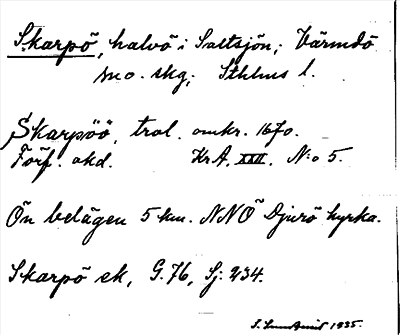 Skarpö, halvö i Saltsjön; Värmdö
mo. skg; Sthlms l.
Skarpöö, trol. omkr. 1670.
Förf. okd. KrA. XXII. N:o 5.
Ön belägen 5 km. NNÖ Djurö kyrka.
Skarpö ek, G. 76, Sj: 234.
1935.